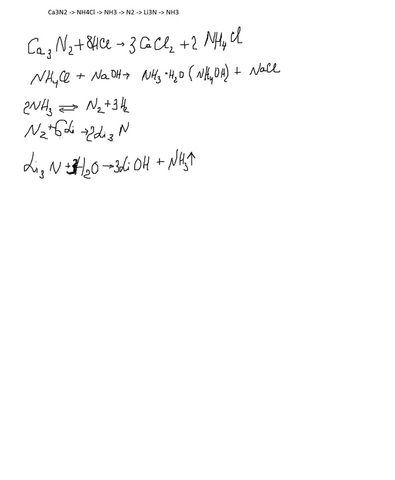 Ca3N2 -> NH4Cl -> NH3 -> N2 -> Li3N -> NH3
Ca₃N₂+8HCl → 3CaCl₂ + 2NH₄Cl
NH₄Cl + NaOH → NH₃·H₂O (NH₄OH) + NaCl
2NH₃ ⇌ N₂+3H₂
N₂+6Li → 2Li₃N
Li₃N + 3H₂O → 3LiOH + NH₃↑